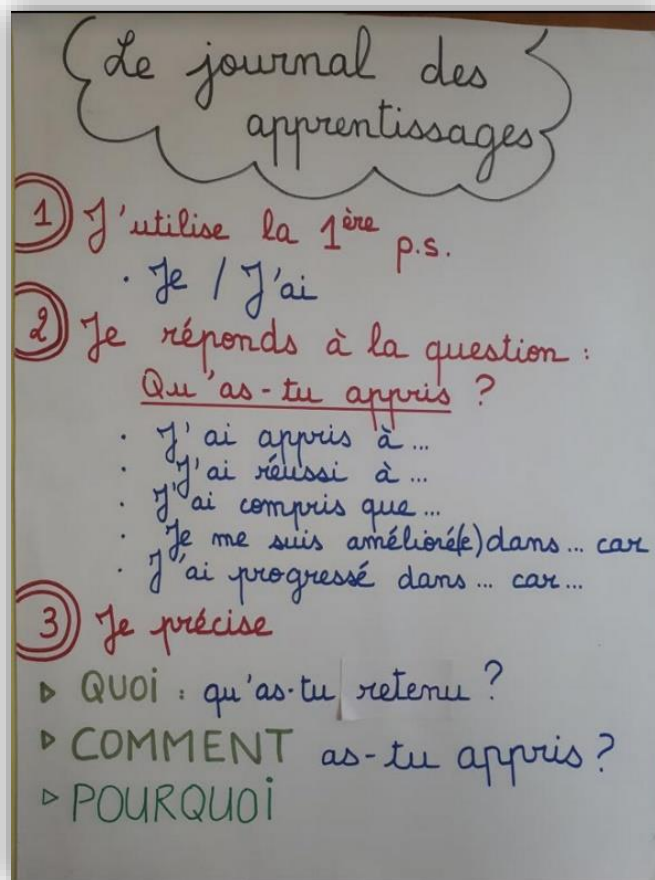 Le journal des
apprentissages
1 J'utilise la 1ère p.s.
· Je / J'ai
2 Je réponds à la question :
Qu'as-tu appris ?
· J'ai appris à ...
· J'ai réussi à ...
· J'ai compris que ...
· Je me suis amélioré(e) dans ... car
· J'ai progressé dans ... car ...
3 Je précise
▷ QUOI : qu'as-tu retenu ?
▷ COMMENT as-tu appris ?
▷ POURQUOI